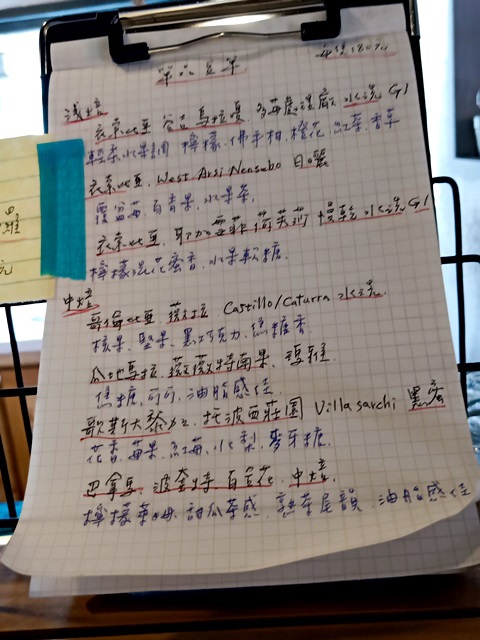 單品豆單
淺焙
衣索比亞 谷吉 烏拉嘎 多莓處理廠 水洗 G1
輕柔水果調 檸檬.佛手柑.橙花.紅茶.香草
衣索比亞. West Arsi Nensebo 日曬
覆盆莓.百香果.水果茶.
衣索比亞. 耶加雪菲 水洗 G1
檸檬混花蜜香.水果軟糖.
中焙
哥倫比亞 薇拉 Castillo/Caturra 水洗.
核果.堅果.黑巧克力.焦糖香.
瓜地馬拉. 薇薇特南果.
焦糖.可可.油脂感佳
哥斯大黎加. 托波西莊園 Villa sarchi 黑蜜
花香.莓果.紅莓.水梨.麥牙糖.
巴拿馬.波奎特 中焙.
檸檬.甜瓜茶感. 尾韻. 油脂感佳
羅
元